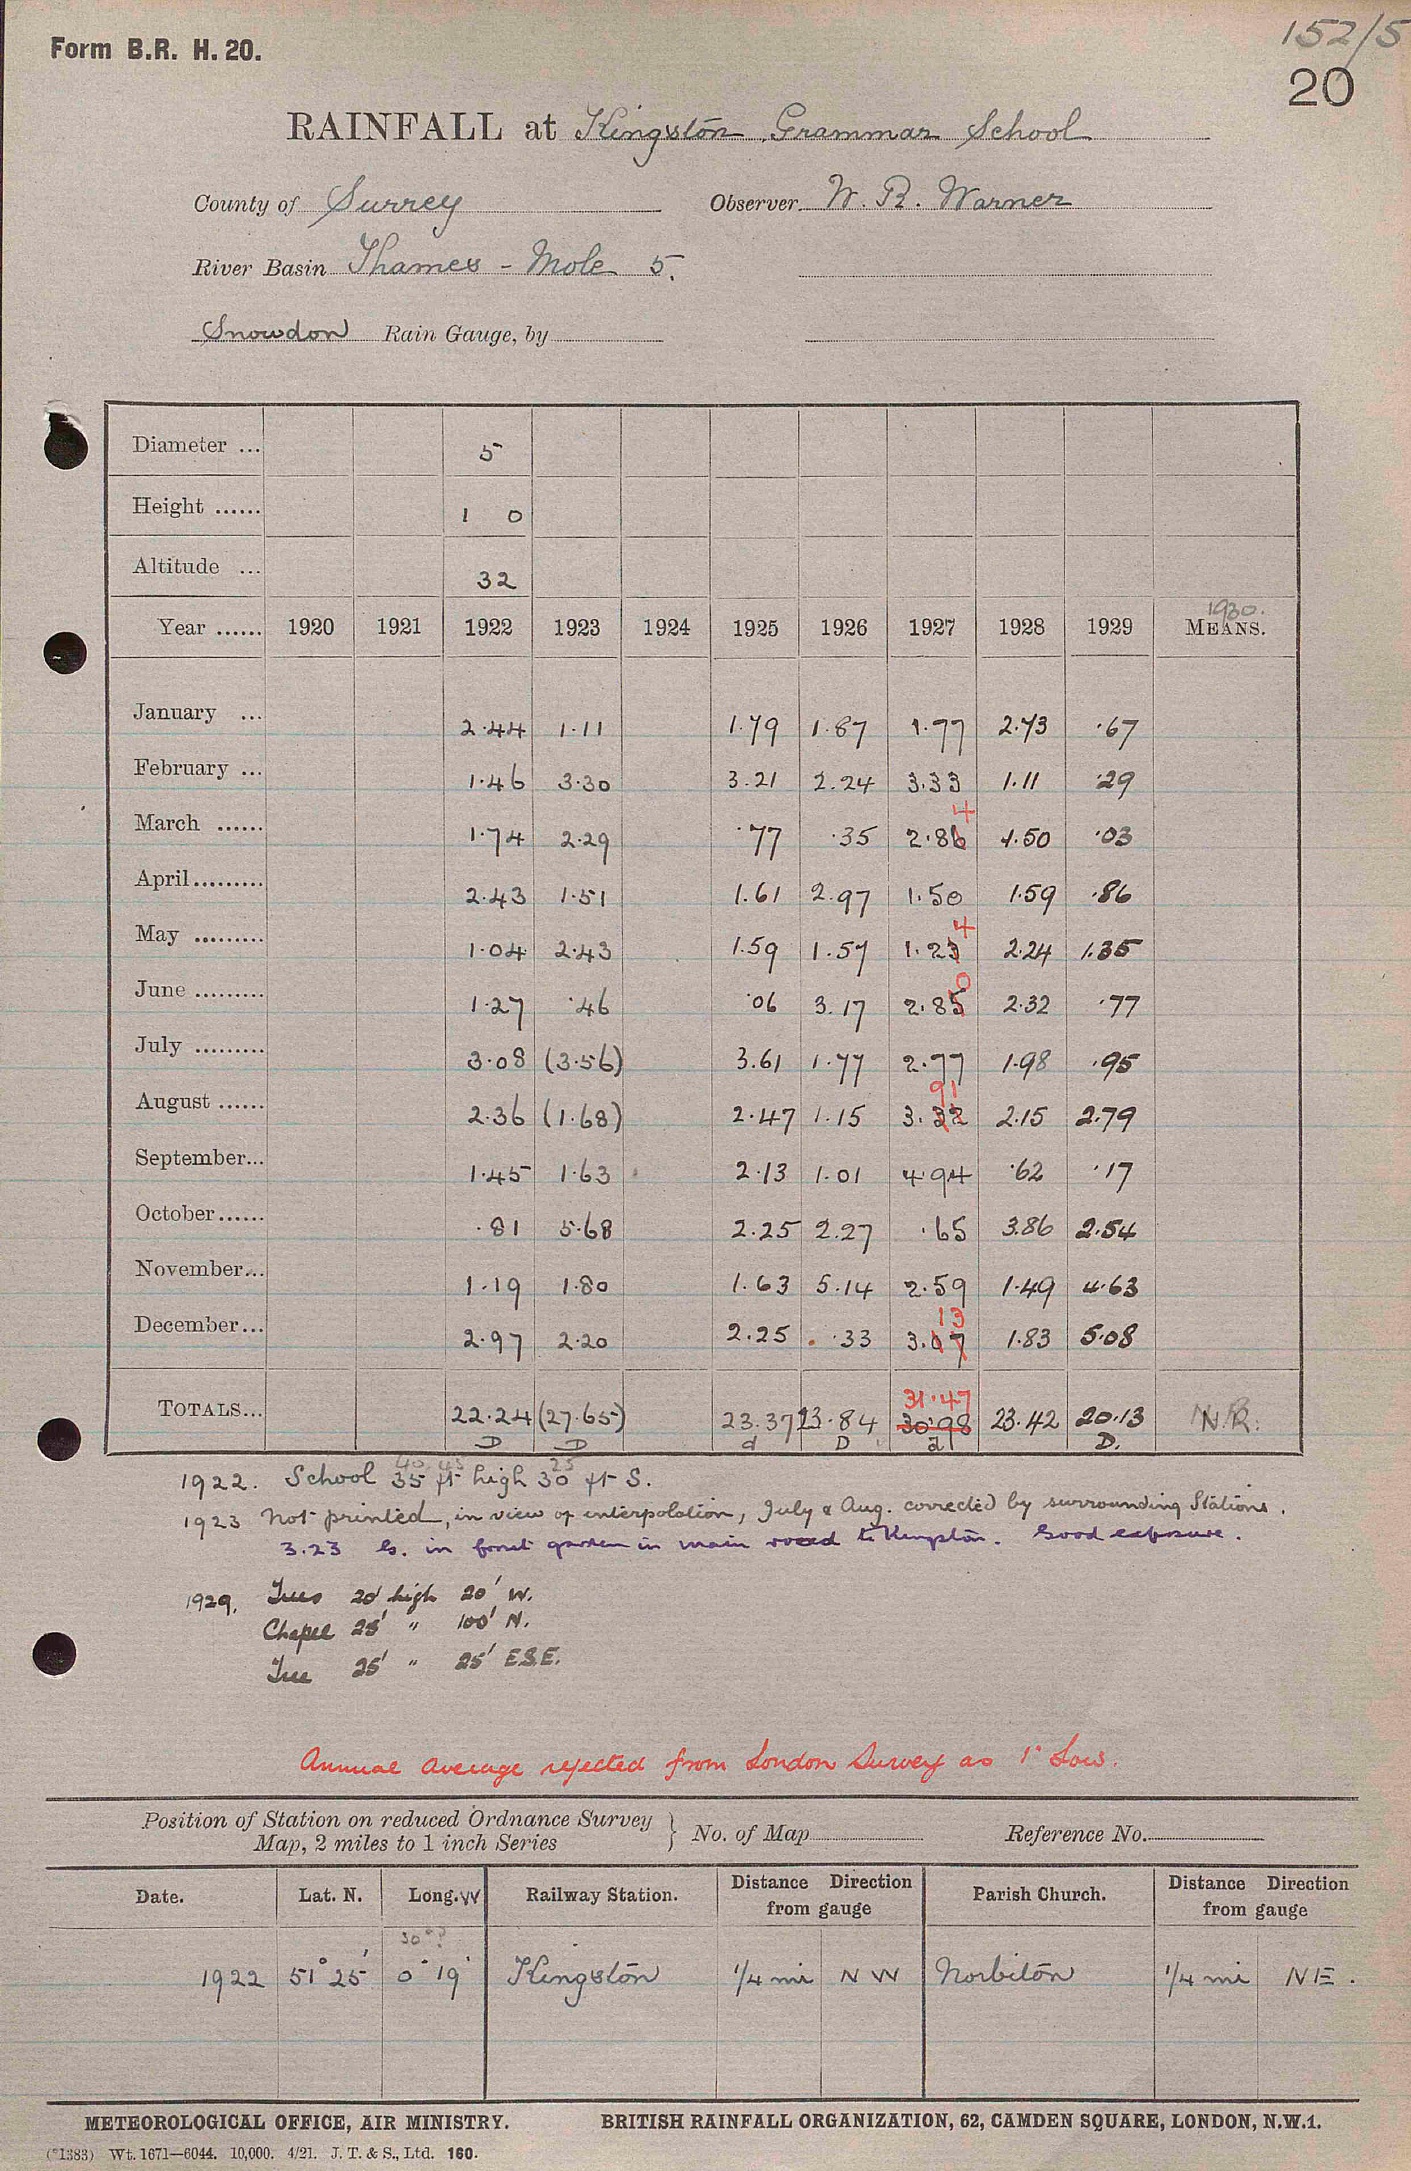 152/5
Form B.R. H. 20.
20
RAINFALL at Kingston Grammar School
County of Surrey Observer W. R. Warner
River Basin Thames - Mole 5.
Snowdon Rain Gauge, by
Diameter ... 5
Height ...... 1 0
Altitude ... 32
1930.
Year ...... 1920 1921 1922 1923 1924 1925 1926 1927 1928 1929 MEANS.
January ... 2.44 1.11 1.79 1.87 1.77 2.73 .67
February ... 1.46 3.30 3.21 2.24 3.33 1.11 .29
4
March ...... 1.74 2.29 .77 .35 2.86 1.50 .03
April......... 2.43 1.51 1.61 2.97 1.50 1.59 .86
4
May ......... 1.04 2.43 1.59 1.57 1.23 2.24 1.35
0
June ......... 1.27 .46 .06 3.17 2.85 2.32 .77
July ......... 3.08 (3.56) 3.61 1.77 2.77 1.98 .95
91
August ...... 2.36 (1.68) 2.47 1.15 3.32 2.15 2.79
September... 1.45 1.63 2.13 1.01 4.94 .62 .17
October...... .81 5.68 2.25 2.27 .65 3.86 2.54
November... 1.19 1.80 1.63 5.14 2.59 1.49 4.63
13
December... 2.97 2.20 2.25 .33 3.07 1.83 5.08
31.47
TOTALS... 22.24 (27.65) 23.37 23.84 30.98 23.42 20.13 N.R.
D D d D d D.
40.45 25
1922. School 35 ft high 30 ft S.
1923 Not printed, in view of interpolation, July & Aug. corrected by surrounding Stations.
3.23 G. in front garden in main road to Kingston. Good exposure.
1929. Trees 20' high 20' W.
Chapel 25' " 100' N.
Tree 25' " 25' E.S.E.
Annual Average rejected from London Survey as 1" Low.
Position of Station on reduced Ordnance Survey
Map, 2 miles to 1 inch Series } No. of Map Reference No.
Date. Lat. N. Long. W Railway Station. Distance Direction from gauge Parish Church. Distance Direction from gauge
30"?
1922 51° 25' 0° 19' Kingston 1/4 mi N W Norbiton 1/4 mi NE.
METEOROLOGICAL OFFICE, AIR MINISTRY. BRITISH RAINFALL ORGANIZATION, 62, CAMDEN SQUARE, LONDON, N.W.1.
(*1383) Wt. 1671—6044. 10,000. 4/21. J. T. & S., Ltd. 160.